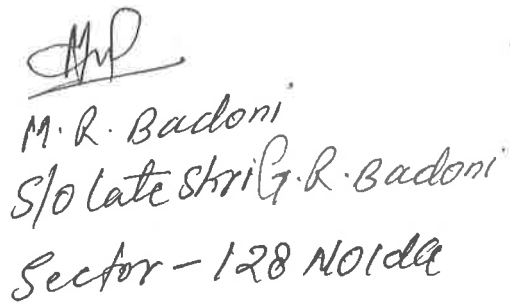 M.R. Badoni
S/o Late Shri G.R. Badoni
Sector - 128 Noida